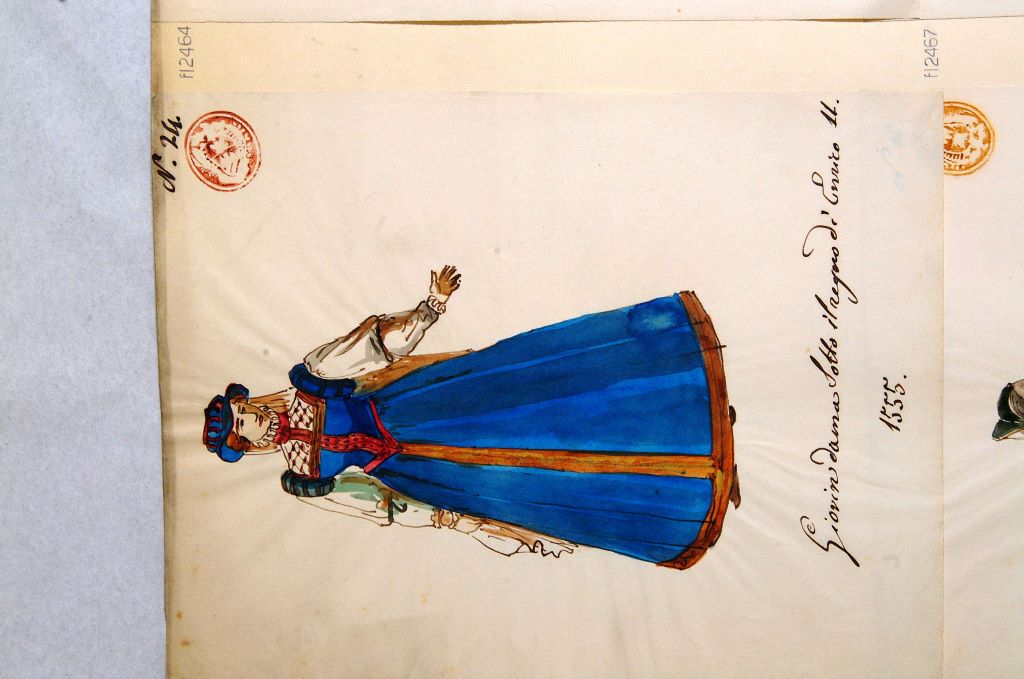 fl2464
fl2467
N.º 24.
Giovin dama sotto il regno di Enrico II.
1555.